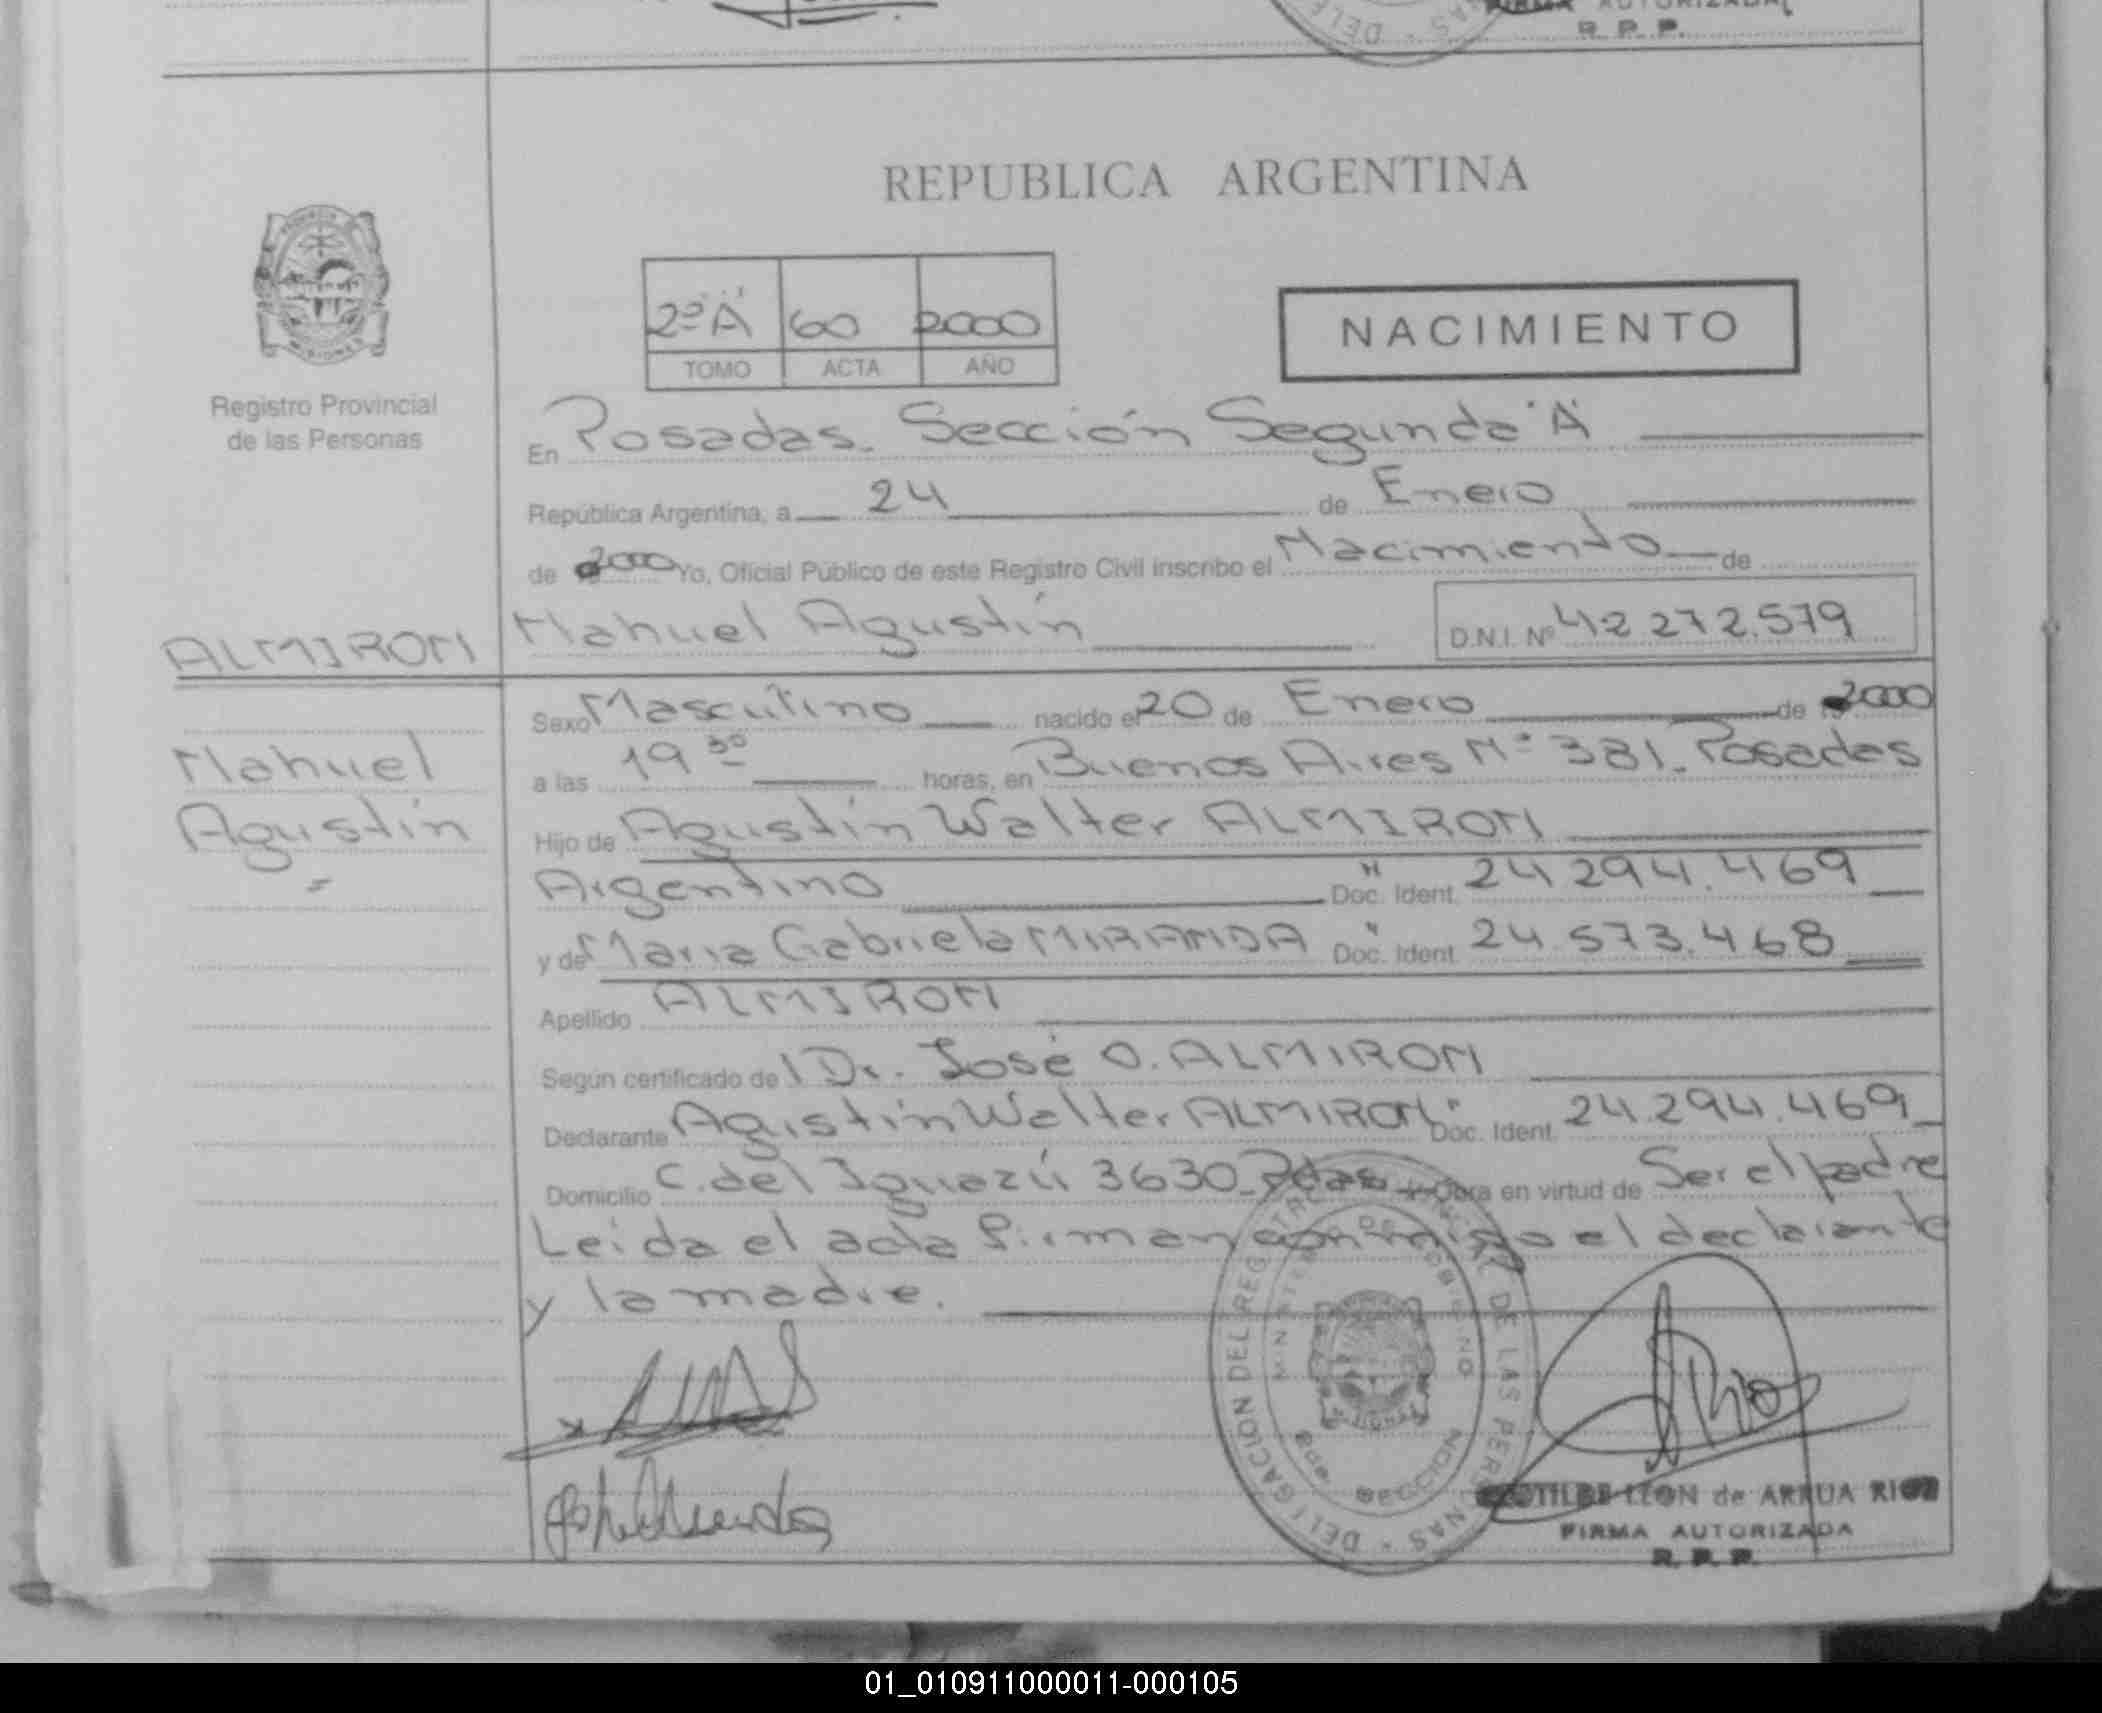 FIRMA AUTORIZADA
R. P. P.
REPUBLICA ARGENTINA
2º "A" 60 2000
TOMO ACTA AÑO
NACIMIENTO
Registro Provincial
de las Personas
En Posadas. Sección Segunda "A"
República Argentina, a 24 de Enero
de 2000 Yo, Oficial Público de este Registro Civil inscribo el Nacimiento de
ALMIRON Nahuel Agustín D.N.I. Nº 42.272.579
Sexo Masculino nacido el 20 de Enero de 2000
Nahuel
Agustín
a las 19 30 horas, en Buenos Aires Nº 381. Posadas
Hijo de Agustín Walter ALMIRON
Argentino Doc. Ident. 24.294.469
y de Maria Gabriela MIRANDA Doc. Ident. 24.573.468
Apellido ALMIRON
Según certificado del Dr. José O. ALMIRON
Declarante Agustín Walter ALMIRON Doc. Ident. 24.294.469
Domicilio C. del Iguazú 3630 Pdas Obra en virtud de Ser el padre
Leida el acta firman conmigo el declarante
y la madre.
DELEGACION DEL REGISTRO PROVINCIAL DE LAS PERSONAS
MINISTERIO DE GOBIERNO
2da SECCION
MISIONES
LEON de ARRUA RIOS
FIRMA AUTORIZADA
R. P. P.
01_010911000011-000105